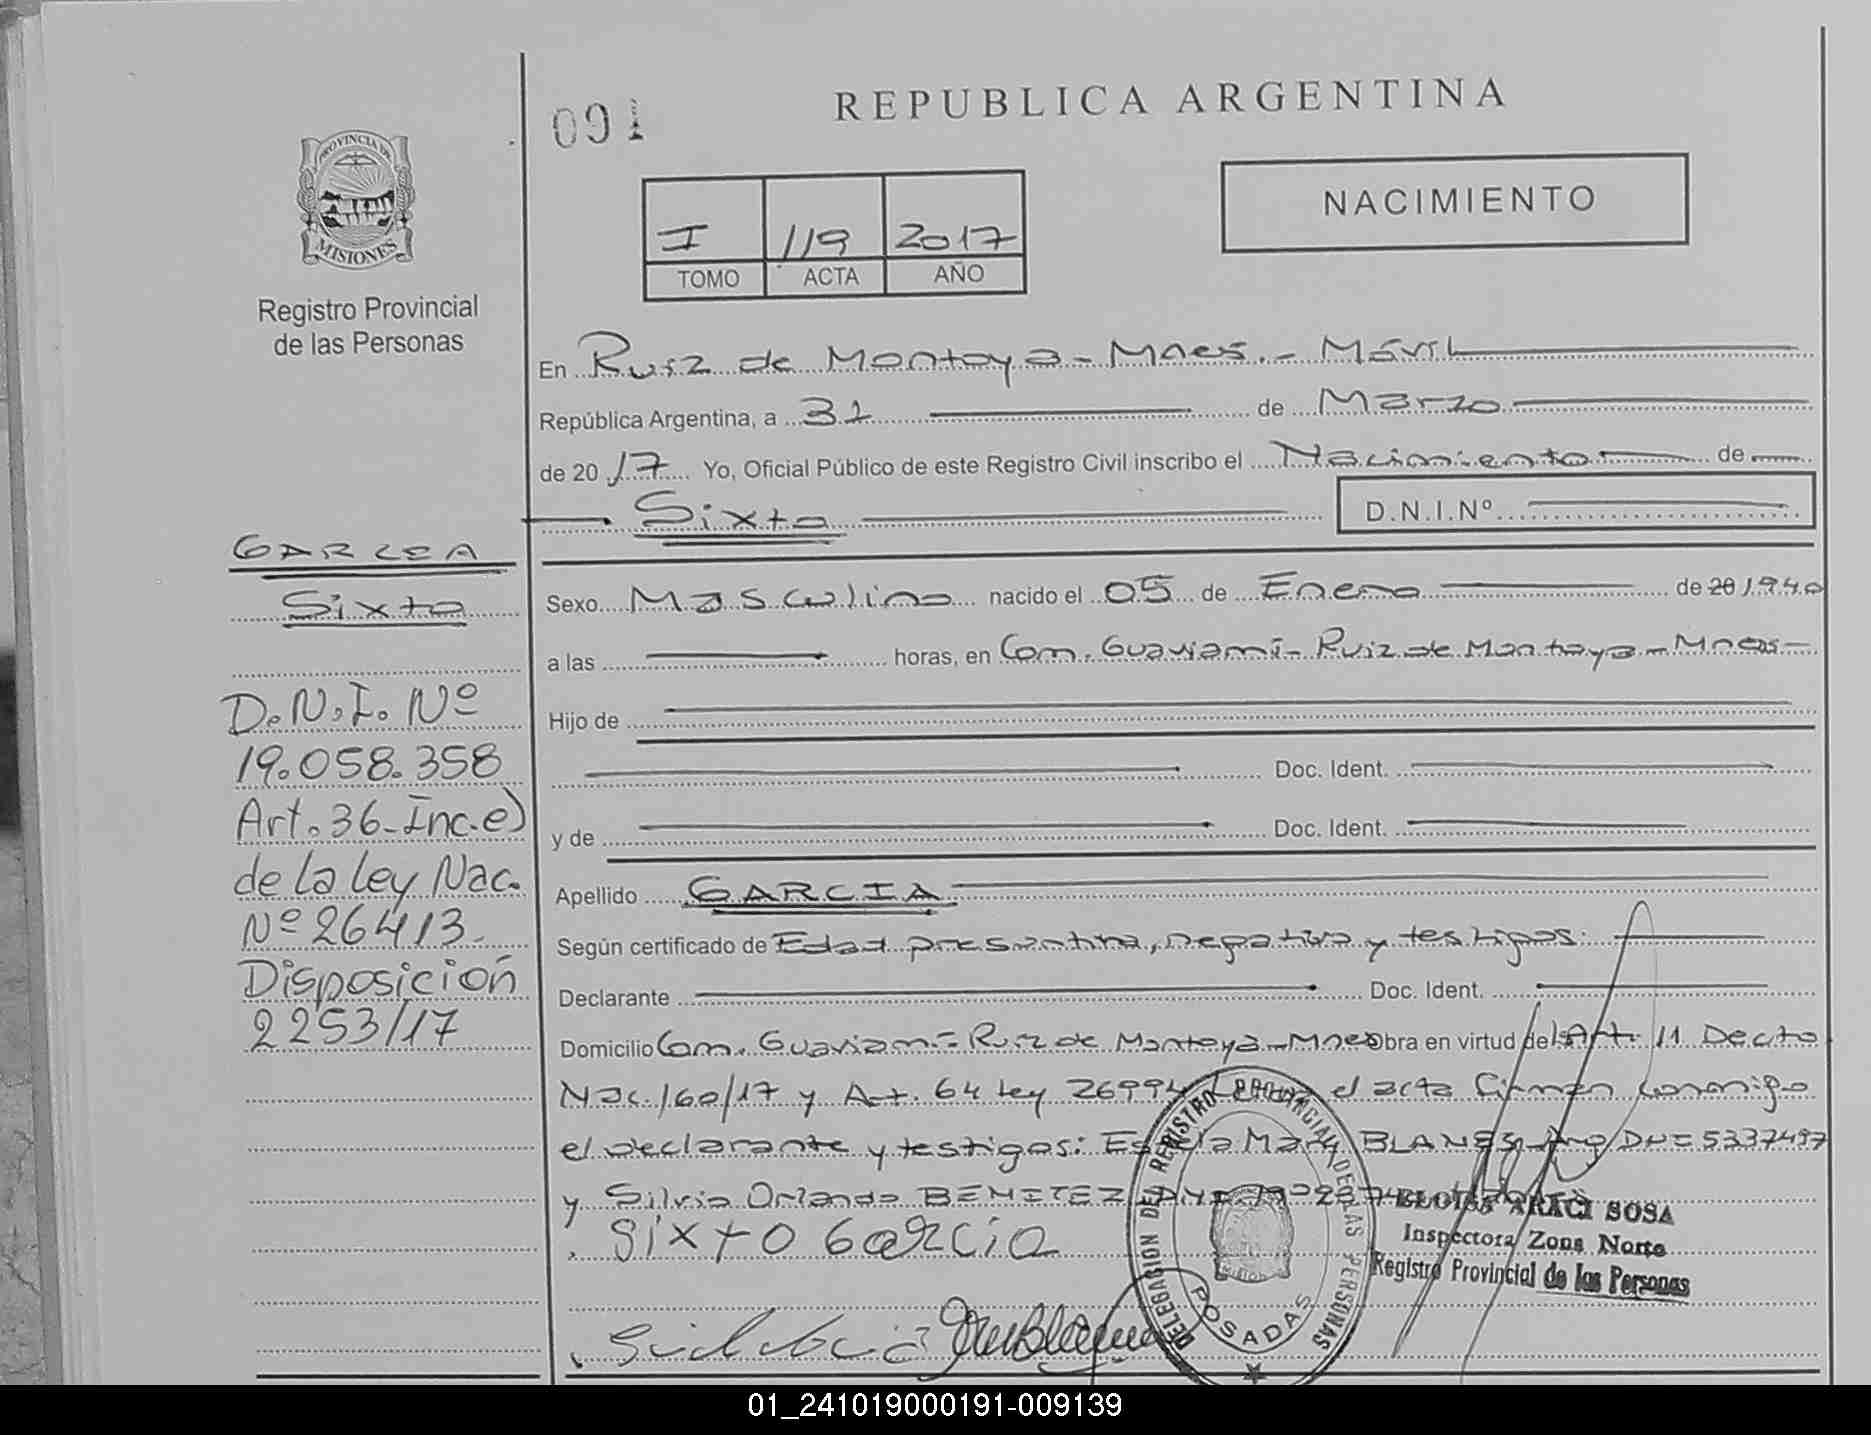 091
REPUBLICA ARGENTINA
NACIMIENTO
I 119 2017
TOMO ACTA AÑO
PROVINCIA DE
MISIONES
Registro Provincial
de las Personas
GARCIA
Sixto
D.N.I. Nº
19.058.358
Art. 36-Inc.e)
de la ley Nac.
Nº 26413.
Disposición
2253/17
En Ruiz de Montoya - Mnes. - Móvil
República Argentina, a 31 de Marzo
de 20 17 Yo, Oficial Público de este Registro Civil inscribo el Nacimiento de
Sixto D.N.I.Nº
Sexo Masculino nacido el 05 de Enero de 20 1940
a las horas, en Com. Guaviamí - Ruiz de Montoya - Mnes -
Hijo de
Doc. Ident.
y de Doc. Ident.
Apellido GARCIA
Según certificado de Edad presuntiva, negativa y testigos.
Declarante Doc. Ident.
Domicilio Com. Guaviamí - Ruiz de Montoya - Mnes Obra en virtud del Art. 11 Decto
Nac. 160/17 y Art. 64 Ley 26994 el acta firman conmigo
el declarante y testigos: BLANES DNI 5337497
y Silvio Orlando BENITEZ
sixto Garcia
ELOISA ARACI SOSA
Inspectora Zona Norte
Registro Provincial de las Personas
DELEGACION DEL REGISTRO PROVINCIAL DE LAS PERSONAS
POSADAS
01_241019000191-009139